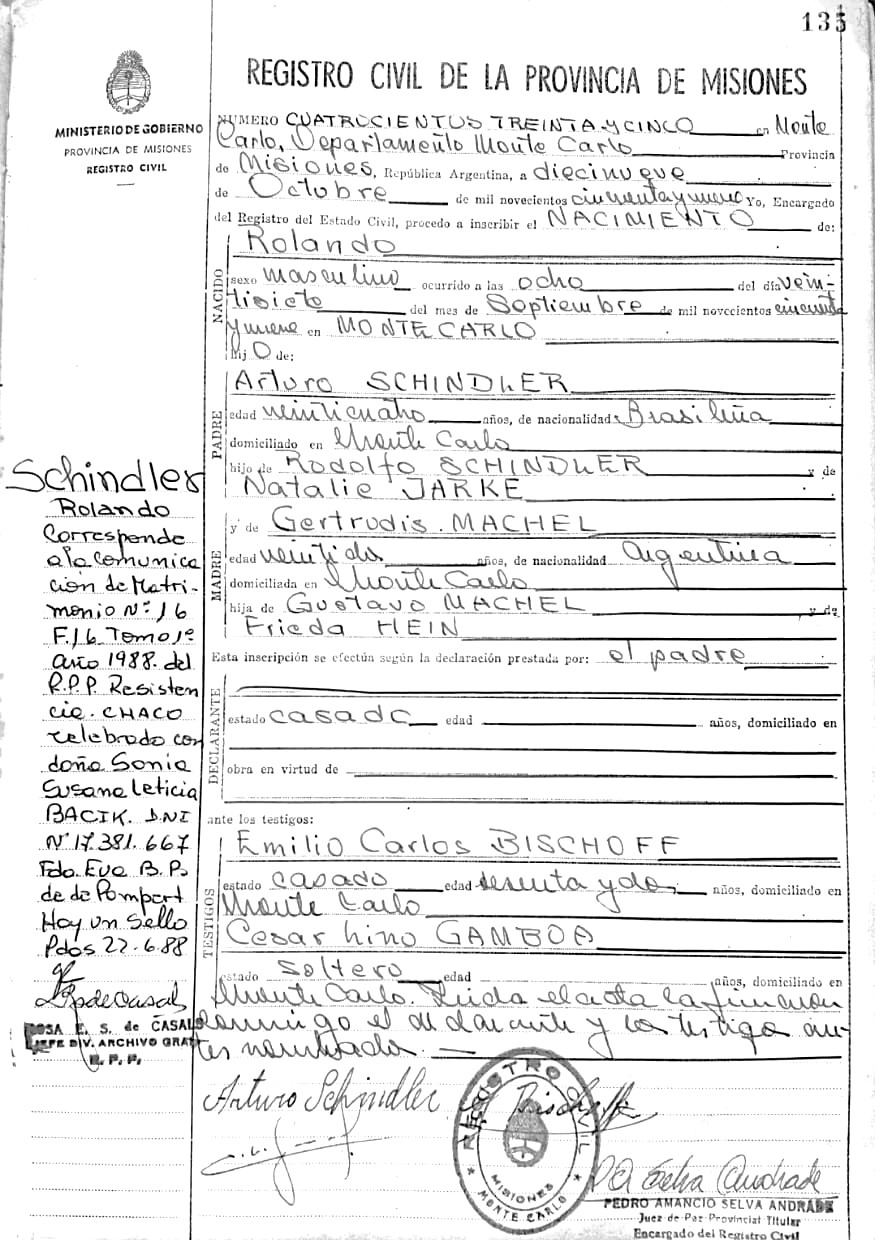 135
REGISTRO CIVIL DE LA PROVINCIA DE MISIONES
MINISTERIO DE GOBIERNO
PROVINCIA DE MISIONES
REGISTRO CIVIL
NUMERO CUATROCIENTOS TREINTA Y CINCO en Monte
Carlo, Departamento Monte Carlo Provincia
de Misiones, República Argentina, a diecinueve
de Octubre de mil novecientos cincuenta y nueve Yo, Encargado
del Registro del Estado Civil, procedo a inscribir el NACIMIENTO de:
NACIDO
Rolando
sexo masculino ocurrido a las ocho del día vein-
tisiete del mes de Septiembre de mil novecientos cincuenta
y nueve en MONTE CARLO
hij O de:
PADRE
Arturo SCHINDLER
edad veinticuatro años, de nacionalidad Brasileña
domiciliado en Monte Carlo
hijo de Rodolfo SCHINDLER y de
Natalie JARKE
MADRE
y de Gertrudis MACHEL
edad veintidos años, de nacionalidad Argentina
domiciliada en Monte Carlo
hija de Gustavo MACHEL y de
Frieda HEIN
Esta inscripción se efectúa según la declaración prestada por: el padre
DECLARANTE
estado casado edad años, domiciliado en
obra en virtud de
ante los testigos:
TESTIGOS
Emilio Carlos BISCHOFF
estado casado edad sesenta y dos años, domiciliado en
Monte Carlo
Cesar Lino GAMBOA
estado Soltero edad años, domiciliado en
Monte Carlo. Leida el acta la firmaron
conmigo el declarante y los testigos an-
tes nombrados.
Schindler
Rolando
Corresponde
a la comunica
ción de Matri-
monio Nº 16
F. 16 Tomo 1º
año 1988 del
R.P.P. Resisten
cia. CHACO
celebrado con
doña Sonia
Susana Leticia
BACIK. DNI
Nº 17.381.667
Fdo. Eva B. P.
de de Pompert
Hay un Sello
Pdos 22-6-88
ROSA E. S. de CASAL
JEFE DIV. ARCHIVO GRAL
R. P. P.
Arturo Schindler
Bischoff
REGISTRO CIVIL
MISIONES
MONTE CARLO
Selva Andrade
PEDRO AMANCIO SELVA ANDRADE
Juez de Paz Provincial Titular
Encargado del Registro Civil